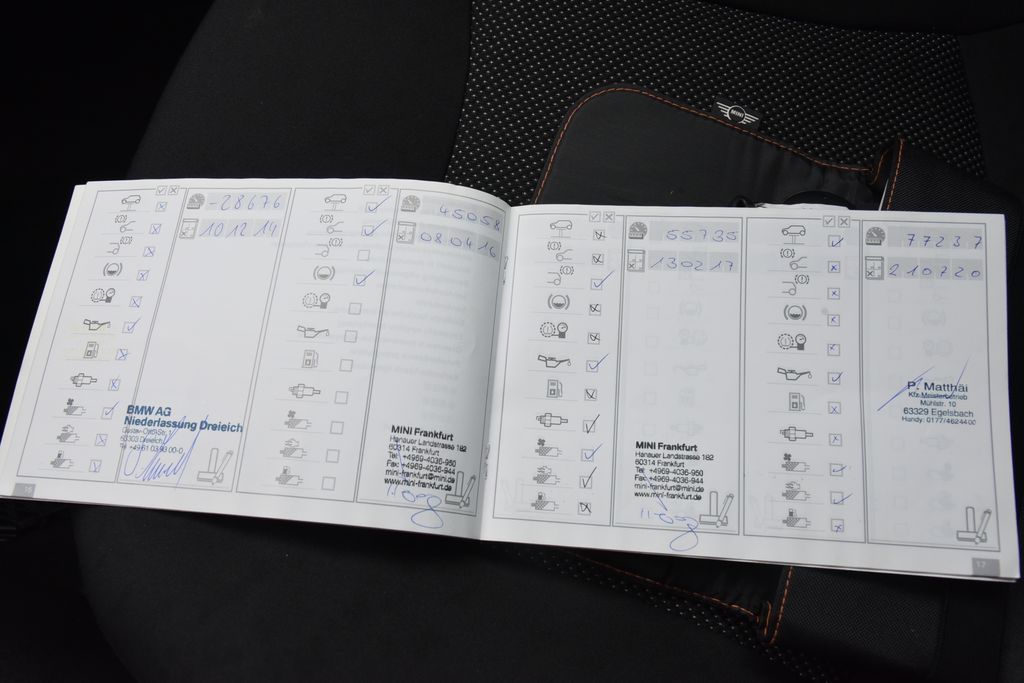 -28676
10 12 14
BMW AG
Niederlassung Dreieich
63303 Dreieich
45058
08 04 16
MINI Frankfurt
Hanauer Landstrasse 182
60314 Frankfurt
Tel: +4969-4036-950
Fax: +4969-4036-944
mini-frankfurt@mini.de
www.mini-frankfurt.de
MINI
55735
13 02 17
MINI Frankfurt
Hanauer Landstrasse 182
60314 Frankfurt
Tel: +4969-4036-950
Fax: +4969-4036-944
mini-frankfurt@mini.de
www.mini-frankfurt.de
77237
21 07 20
P. Matthäi
Kfz-Meisterbetrieb
Mühlstr. 10
63329 Egelsbach
Handy: 0177/4624400
17